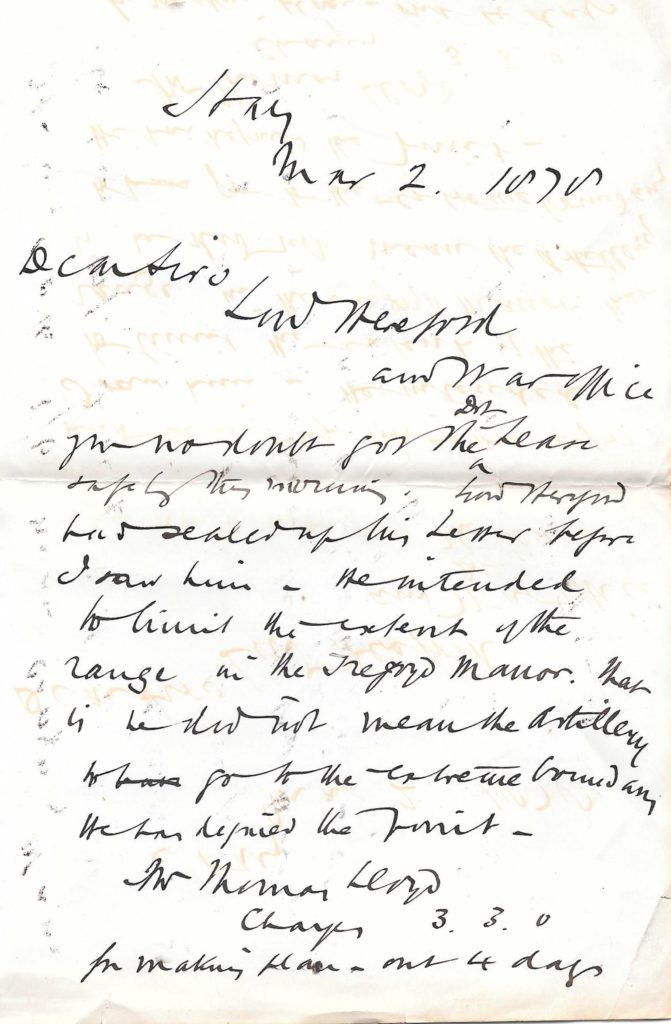 Hay
Mar 2. 1878
Dear Sirs
Lord Hereford
and War Office
Dft
you no doubt got the ^ Lease
safely this morning. Lord Hereford
had sealed up his Letter before
I saw him - He intended
to limit the extent of the
range in the Tregoyd Manor. That
is he did not mean the Artillery
to have go to the extreme boundary
He has defined the point -
Mr Thomas Lloyd
Charges 3. 3. 0
for making plan - out 4 days